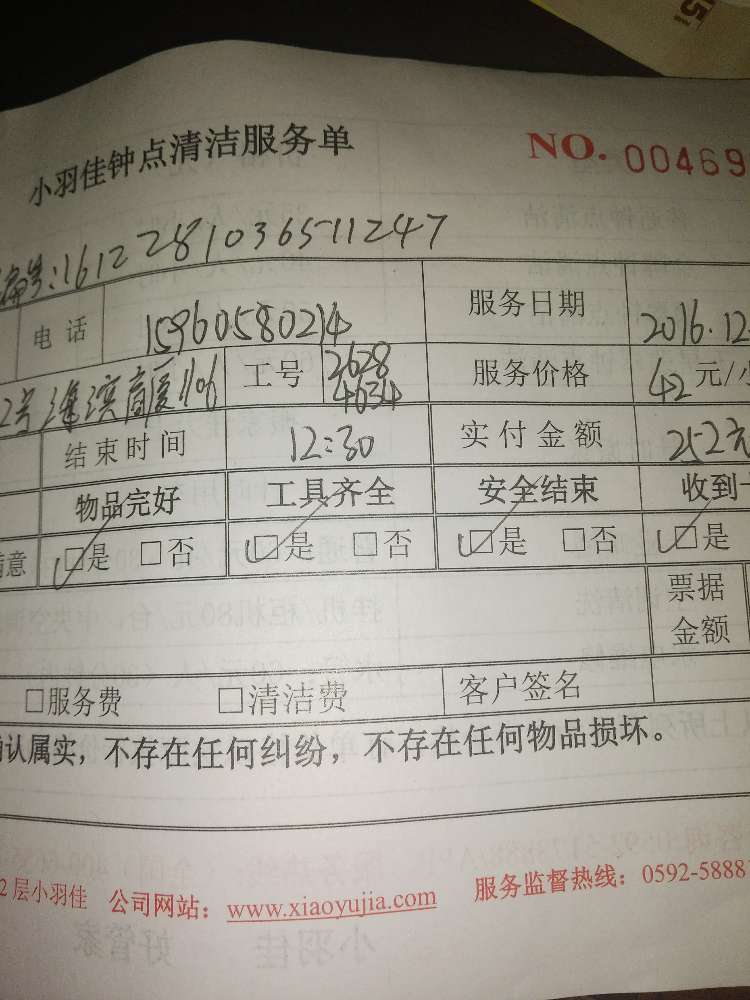 小羽佳钟点清洁服务单
NO. 00469
编号:1612281036511247
电话 15960580214 服务日期 2016.12
2号海滨高厦1106 工号 2628 4634 服务价格 42元/小
结束时间 12:30 实付金额 252元
物品完好 工具齐全 安全结束 收到
满意 □是 □否 □是 □否 □是 □否 □是
票据金额
□服务费 □清洁费 客户签名
确认属实，不存在任何纠纷，不存在任何物品损坏。
2层小羽佳 公司网站：www.xiaoyujia.com 服务监督热线：0592-5888